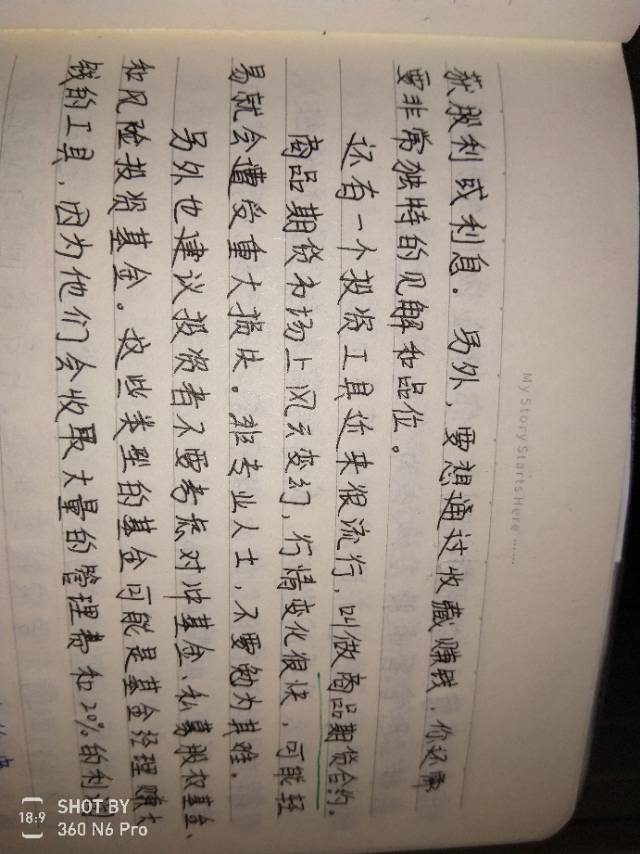 My Story Starts Here ......
获股利或利息。另外，要想通过收藏赚钱，你还需
要非常独特的见解和品位。
还有一个投资工具近来很流行，叫做商品期货合约。
商品期货市场上风云变幻，行情变化很快，可能轻
易就会遭受重大损失。非专业人士，不要勉为其难。
另外也建议投资者不要考虑对冲基金、私募股权基金、
和风险投资基金。这些类型的基金可能是基金经理赚大
钱的工具，因为他们会收取大量的管理费和20%的利润
SHOT BY
360 N6 Pro
18:9